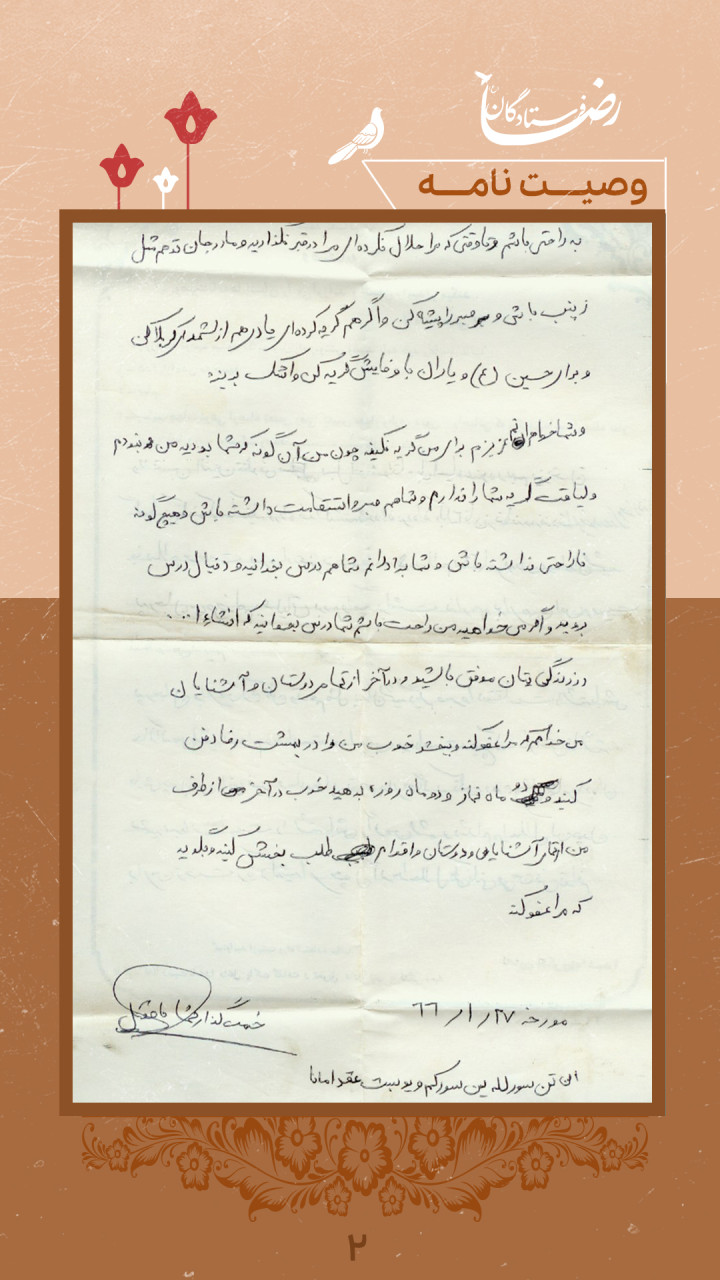 رضا
فرستادگان
وصیت نامه
به راحتی باشم و تا وقتی که مرا حلال نکرده‌ای مرا در قبر نگذارید و مادر جان تو هم مثل
زینب باش و صبر را پیشه کن و اگر هم گریه کرده‌ای یادی هم از شهدای کربلا کن
و برای حسین (ع) و یاران با وفایش گریه کن و اشک بریزد
و شما خواهران عزیزم برای من گریه نکنید چون من آن گونه که شما بودید من نبودم
و لیاقت گریه شما را ندارم و شما هم صبر و استقامت داشته باش و هیچ گونه
ناراحتی نداشته باش و شما برادرانم شما هم درس بخوانید و دنبال درس
بروید و اگر می خواهید من راحت باشم شما درس بخوانید که انشاءا...
در زندگی تان موفق باشید و در آخر از تمام دوستان و آشنایان
می خواهم که مرا عفو کنند و ببخشند خوب من را در بهشت رضا دفن
کنید و دو ماه نماز و دو ماه روزه بدهید خوب در آخر از طرف
من از تمام آشنایان و دوستان و اقوام طلب بخشش کنید و بگویید
که مرا عفو کنند
مورخه ۶۶/۱/۲۷
خدمتگذار شما
۲